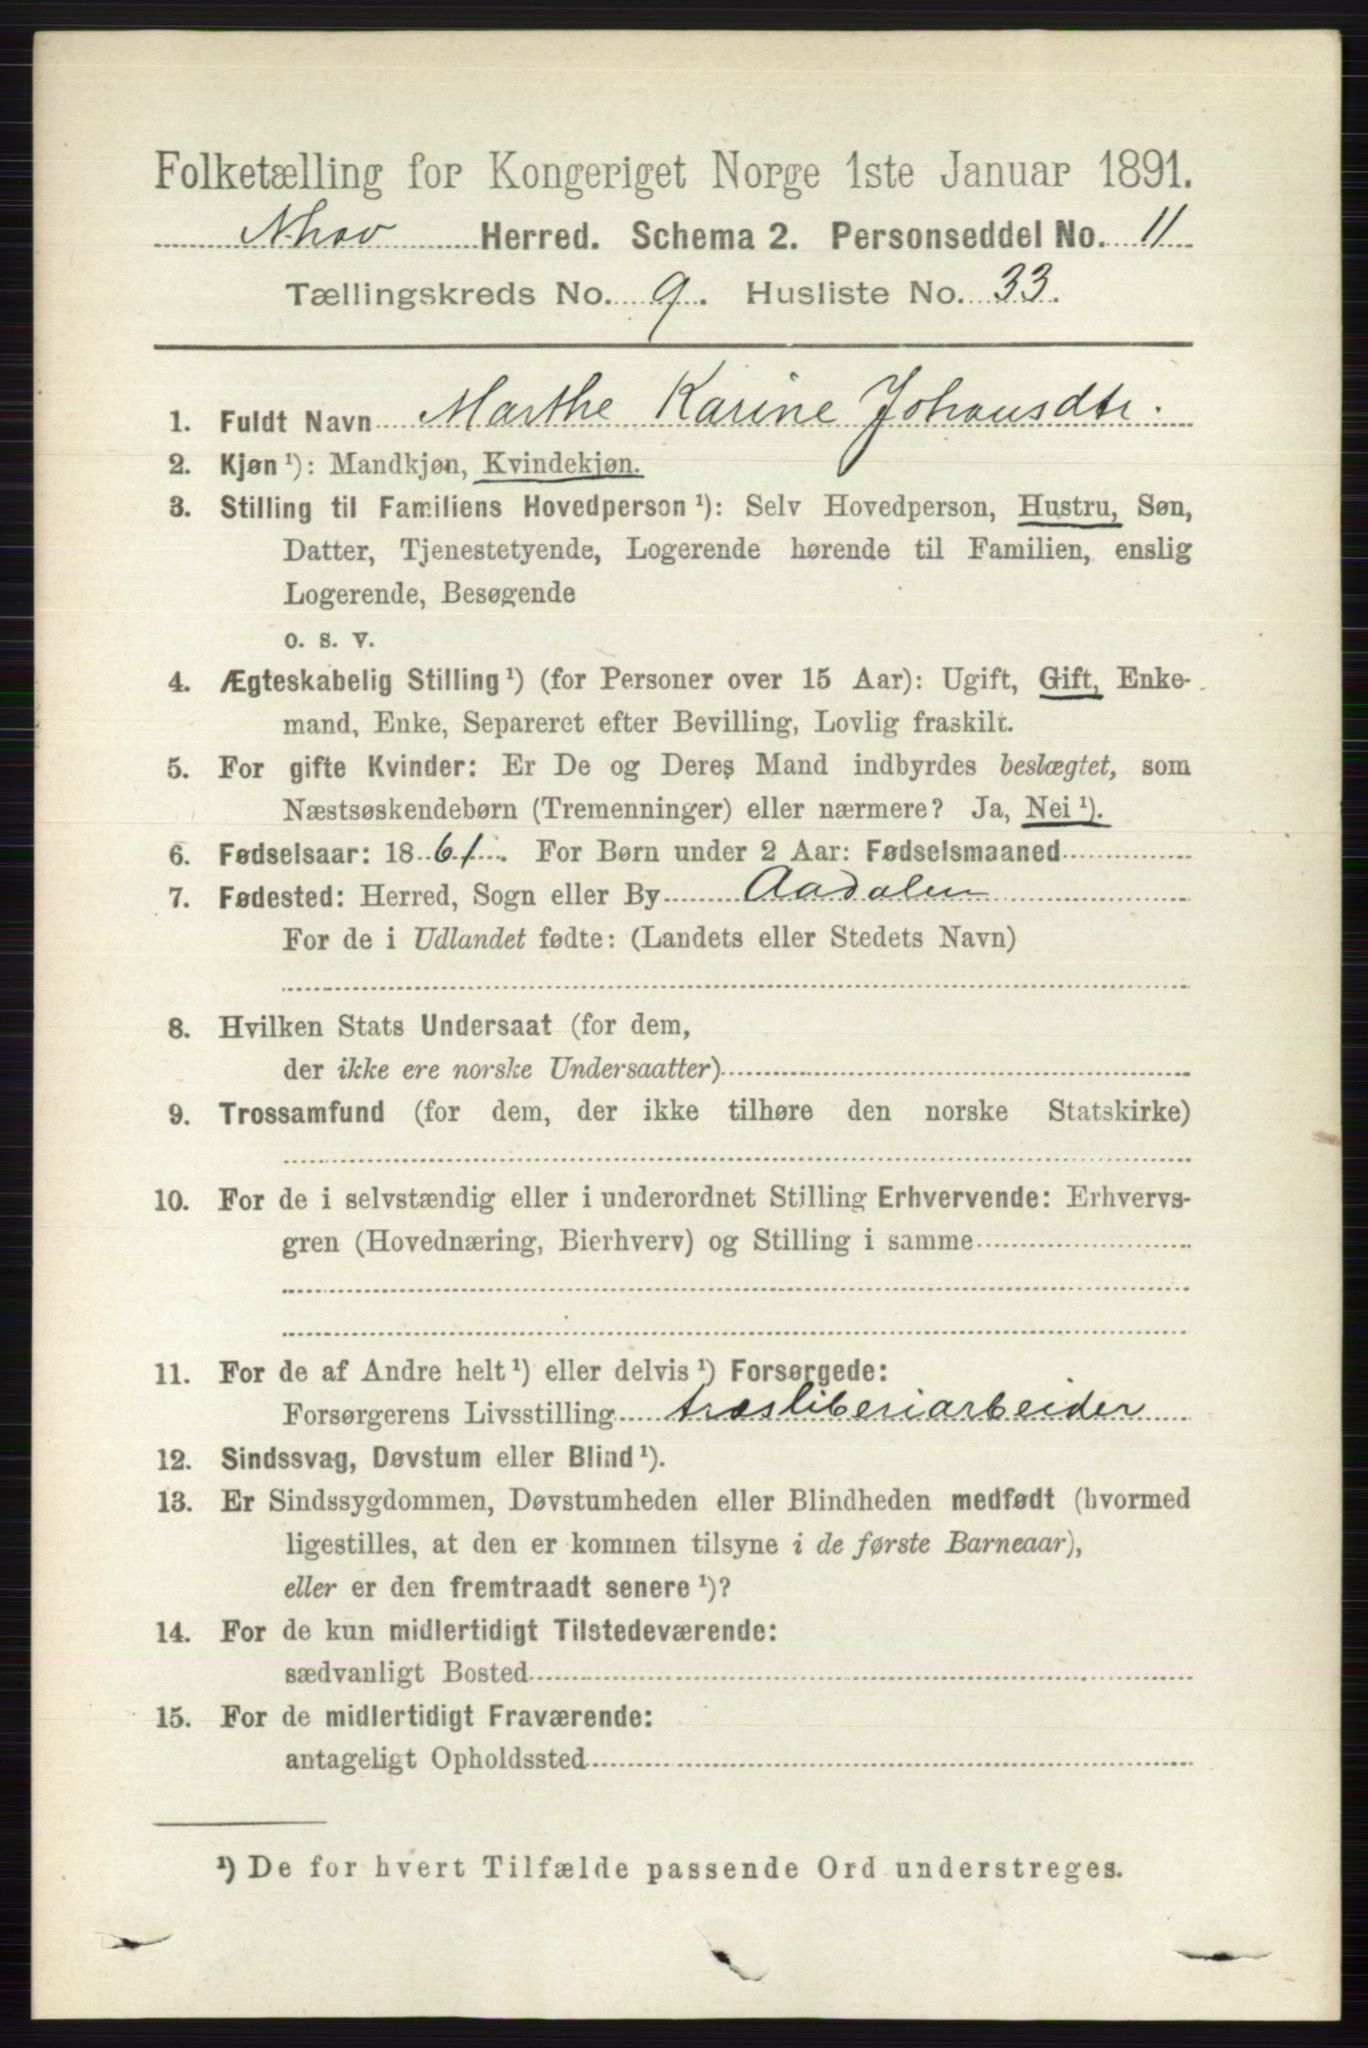 Folketælling for Kongeriget Norge 1ste Januar 1891.
Nhov Herred. Schema 2. Personseddel No. 11
Tællingskreds No. 9. Husliste No. 33.
1. Fuldt Navn Marthe Karine Johansdtr.
2. Kjøn ¹): Mandkjøn, Kvindekjøn.
3. Stilling til Familiens Hovedperson ¹): Selv Hovedperson, Hustru, Søn,
Datter, Tjenestetyende, Logerende hørende til Familien, enslig
Logerende, Besøgende
o. s. v.
4. Ægteskabelig Stilling ¹) (for Personer over 15 Aar): Ugift, Gift, Enke-
mand, Enke, Separeret efter Bevilling, Lovlig fraskilt.
5. For gifte Kvinder: Er De og Deres Mand indbyrdes beslægtet, som
Næstsøskendebørn (Tremenninger) eller nærmere? Ja, Nei ¹).
6. Fødselsaar: 1861. For Børn under 2 Aar: Fødselsmaaned
7. Fødested: Herred, Sogn eller By Aadalen
For de i Udlandet fødte: (Landets eller Stedets Navn)
8. Hvilken Stats Undersaat (for dem,
der ikke ere norske Undersaatter)
9. Trossamfund (for dem, der ikke tilhøre den norske Statskirke)
10. For de i selvstændig eller i underordnet Stilling Erhvervende: Erhvervs-
gren (Hovednæring, Bierhverv) og Stilling i samme
11. For de af Andre helt ¹) eller delvis ¹) Forsørgede:
Forsørgerens Livsstilling træsliberiarbeider
12. Sindssvag, Døvstum eller Blind ¹).
13. Er Sindssygdommen, Døvstumheden eller Blindheden medfødt (hvormed
ligestilles, at den er kommen tilsyne i de første Barneaar),
eller er den fremtraadt senere ¹)?
14. For de kun midlertidigt Tilstedeværende:
sædvanligt Bosted
15. For de midlertidigt Fraværende:
antageligt Opholdssted
¹) De for hvert Tilfælde passende Ord understreges.